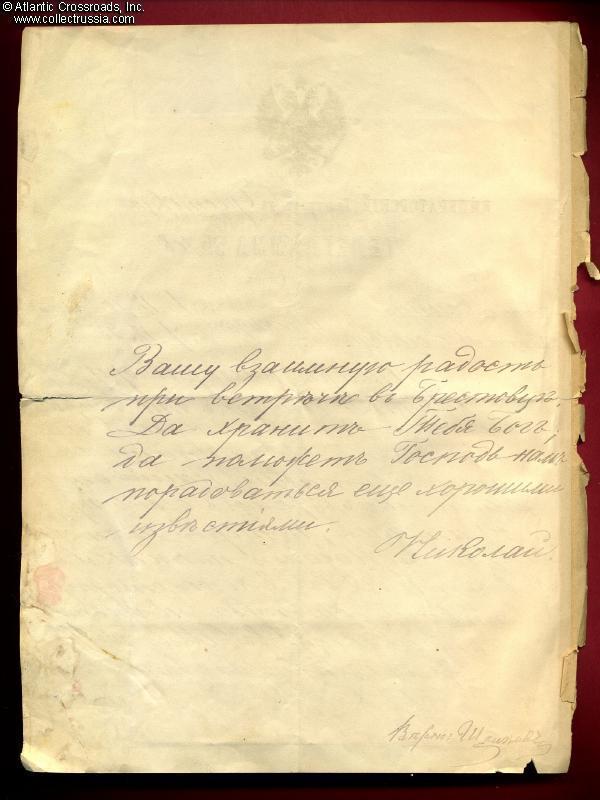 © Atlantic Crossroads, Inc.
www.collectrussia.com
Вашу взаимную радость
при встрѣчѣ въ Брестовцѣ.
Да хранитъ Тебя Богъ,
да поможетъ Господь намъ
порадоваться еще хорошими
извѣстіями.
Николай.